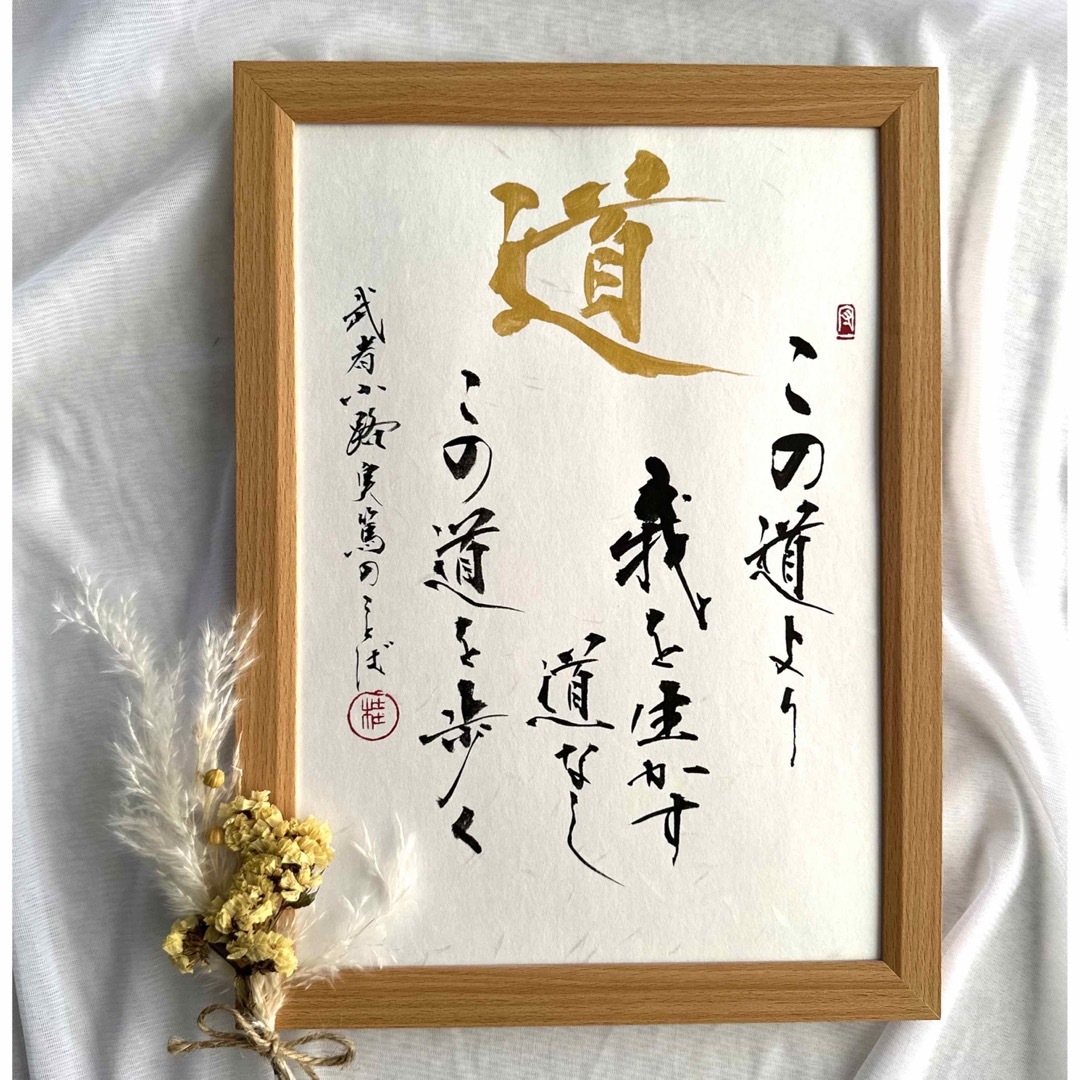 道
この道より
我を生かす
道なし
この道を歩く
武者小路実篤のことば
桂